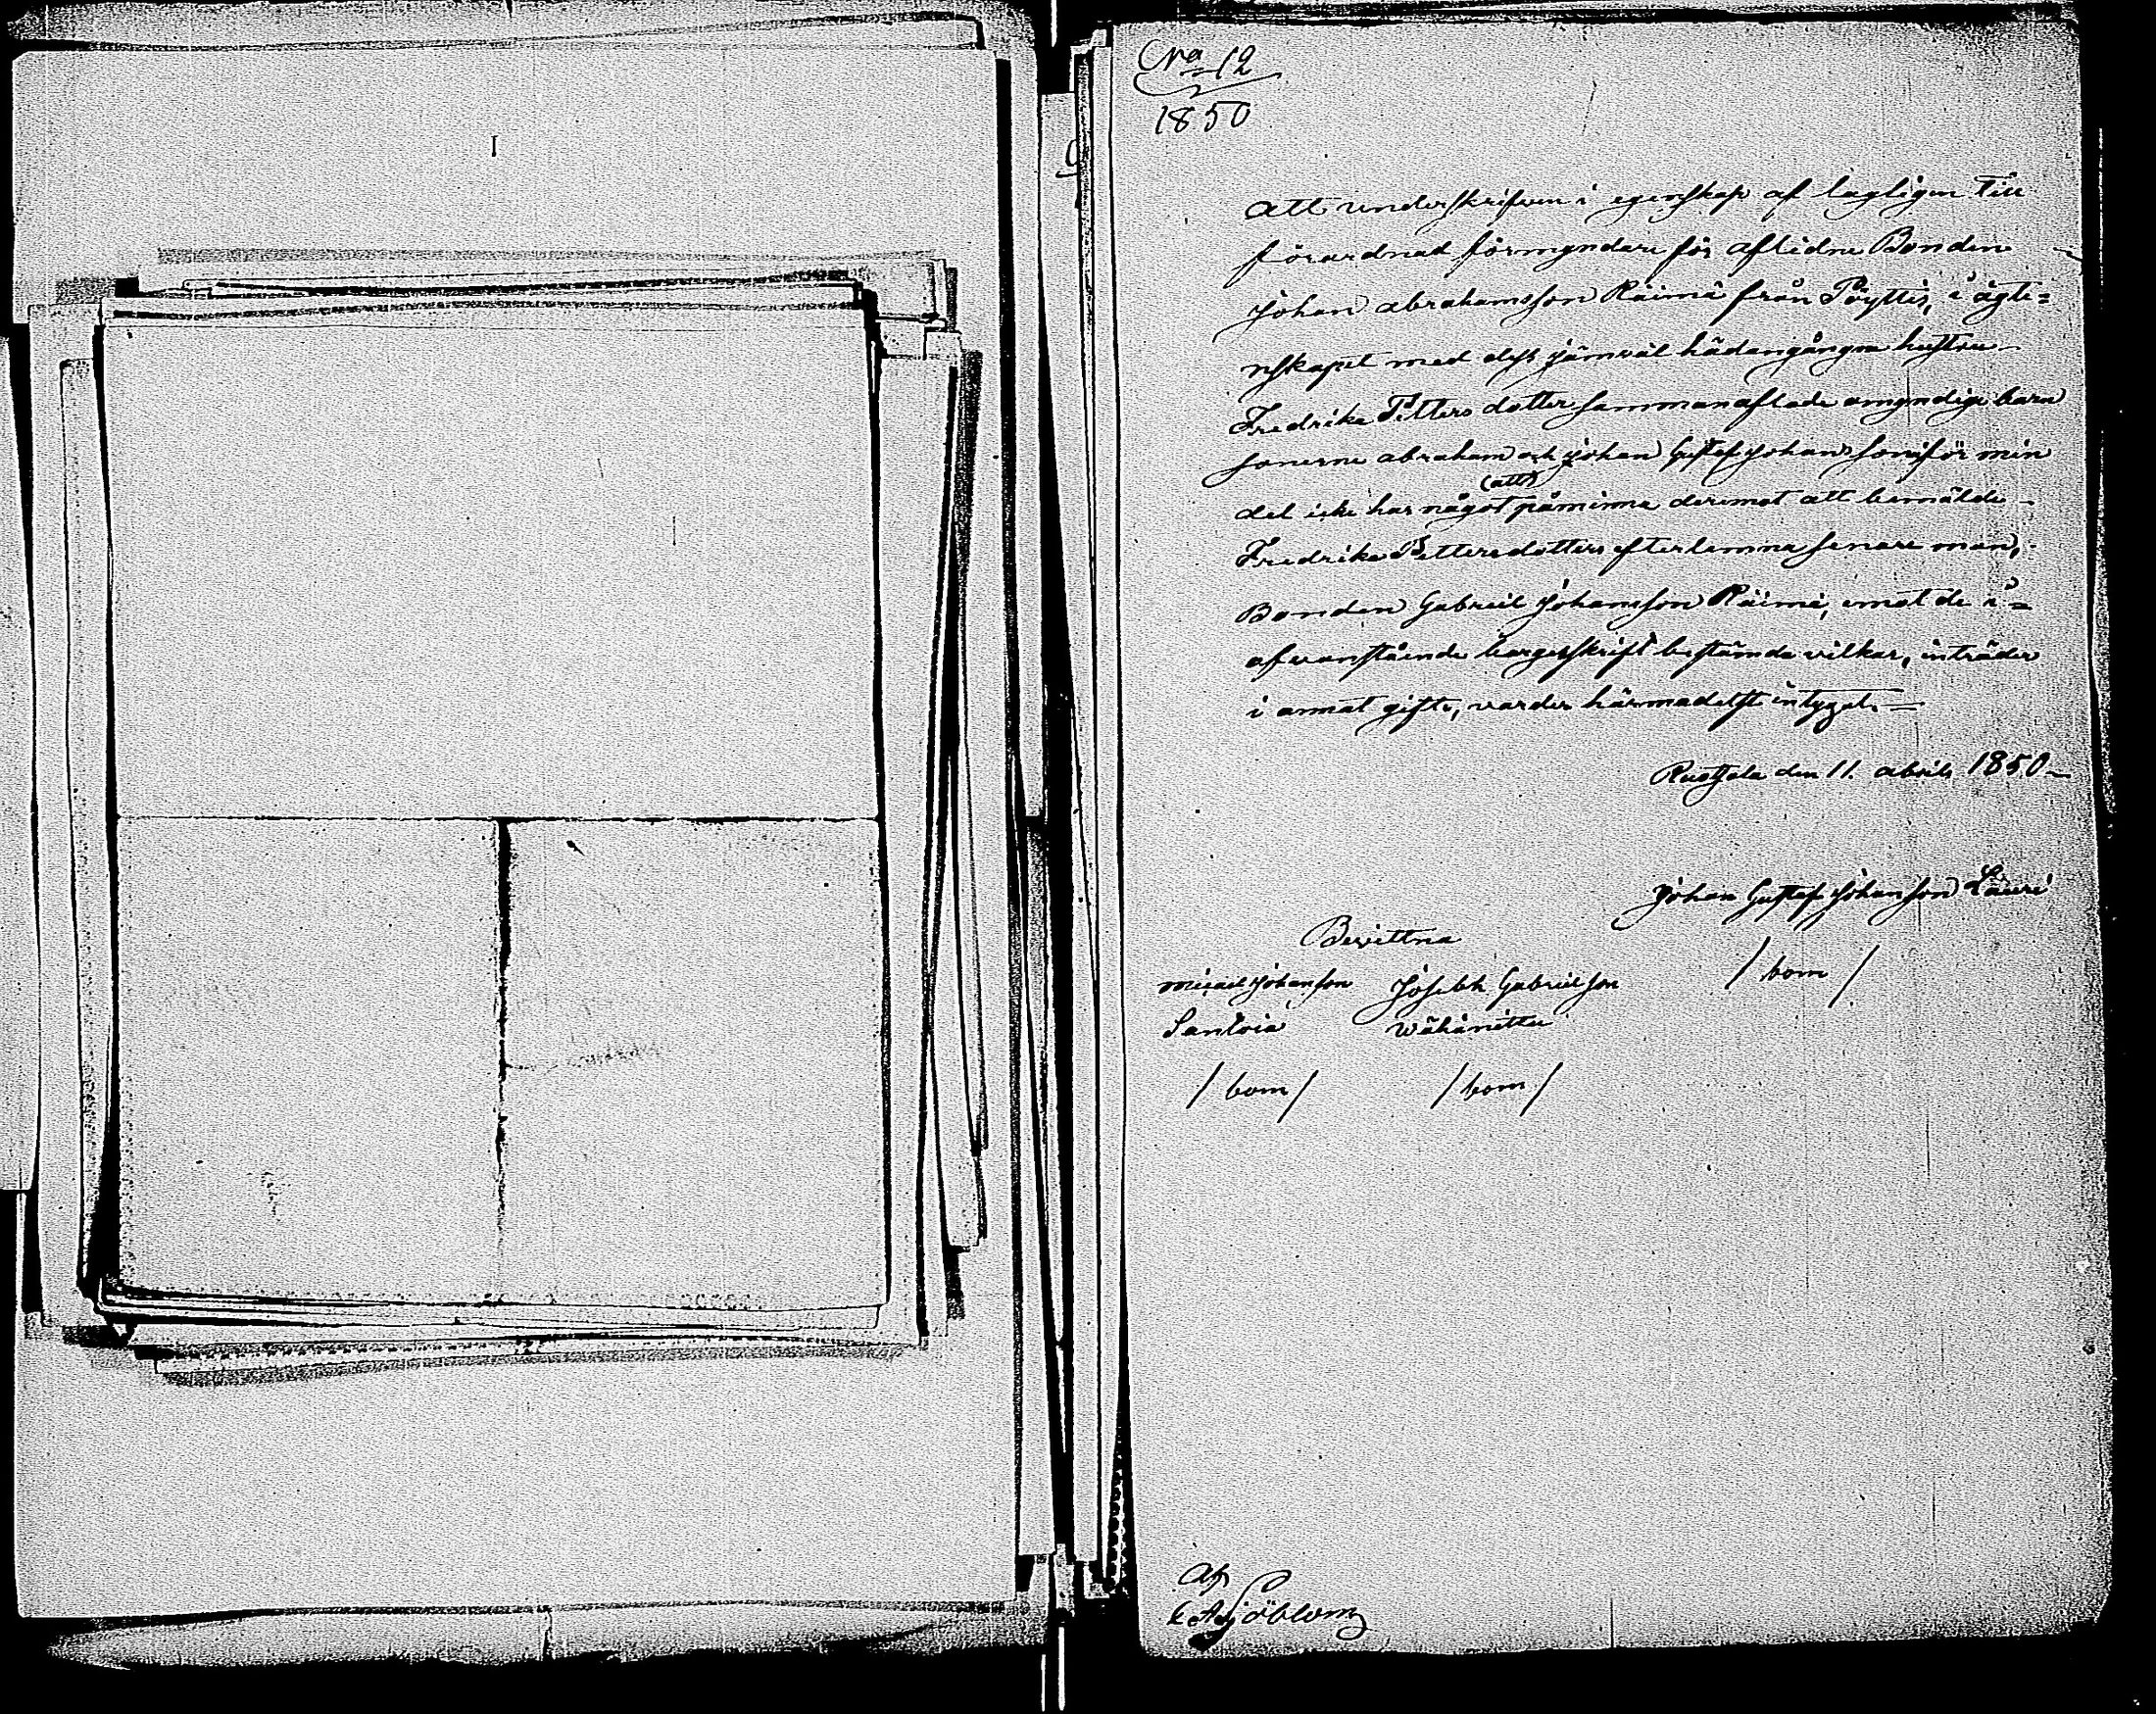 No 12
1850
Att underskrifven i egenskap af lagligen till
förordnad förmyndare för aflidne Bonden
Johan Abrahamsson Räimä från Pöyttis, i ägte=
nskapet med dess jämväl hädangångna hustru
Fredrika Petters dotter sammanaflade omyndige barn
sonerne Abraham och Johan Gustaf Johans söner för min
(att)
del icke har något påminna deremot att bemälde
Fredrika Pettersdotters efterlemna senare man,
Bonden Gabriel Johansson Räimä, emot de i
ofvanstående bergeskrift bestämda vilkor, inträder
i annat gifte, varder härmedelst intygat.
den 11. abril 1850
Johan Gustaf Johansson Lauri
/ bom /
Bevittna
Micael Johansson
Josebh Gabrielsson
Santoia
Wähänittu
/ bom /
/ bom /
Af
Sjöblom